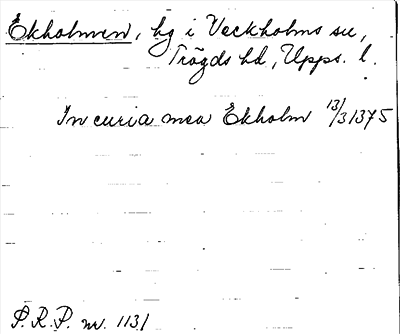 Ekholmen, hg i Veckholms sn,
Trögds hd, Upps. l.
In curia mea Ekholm 13/3 1375
P.R.P. nr. 1131